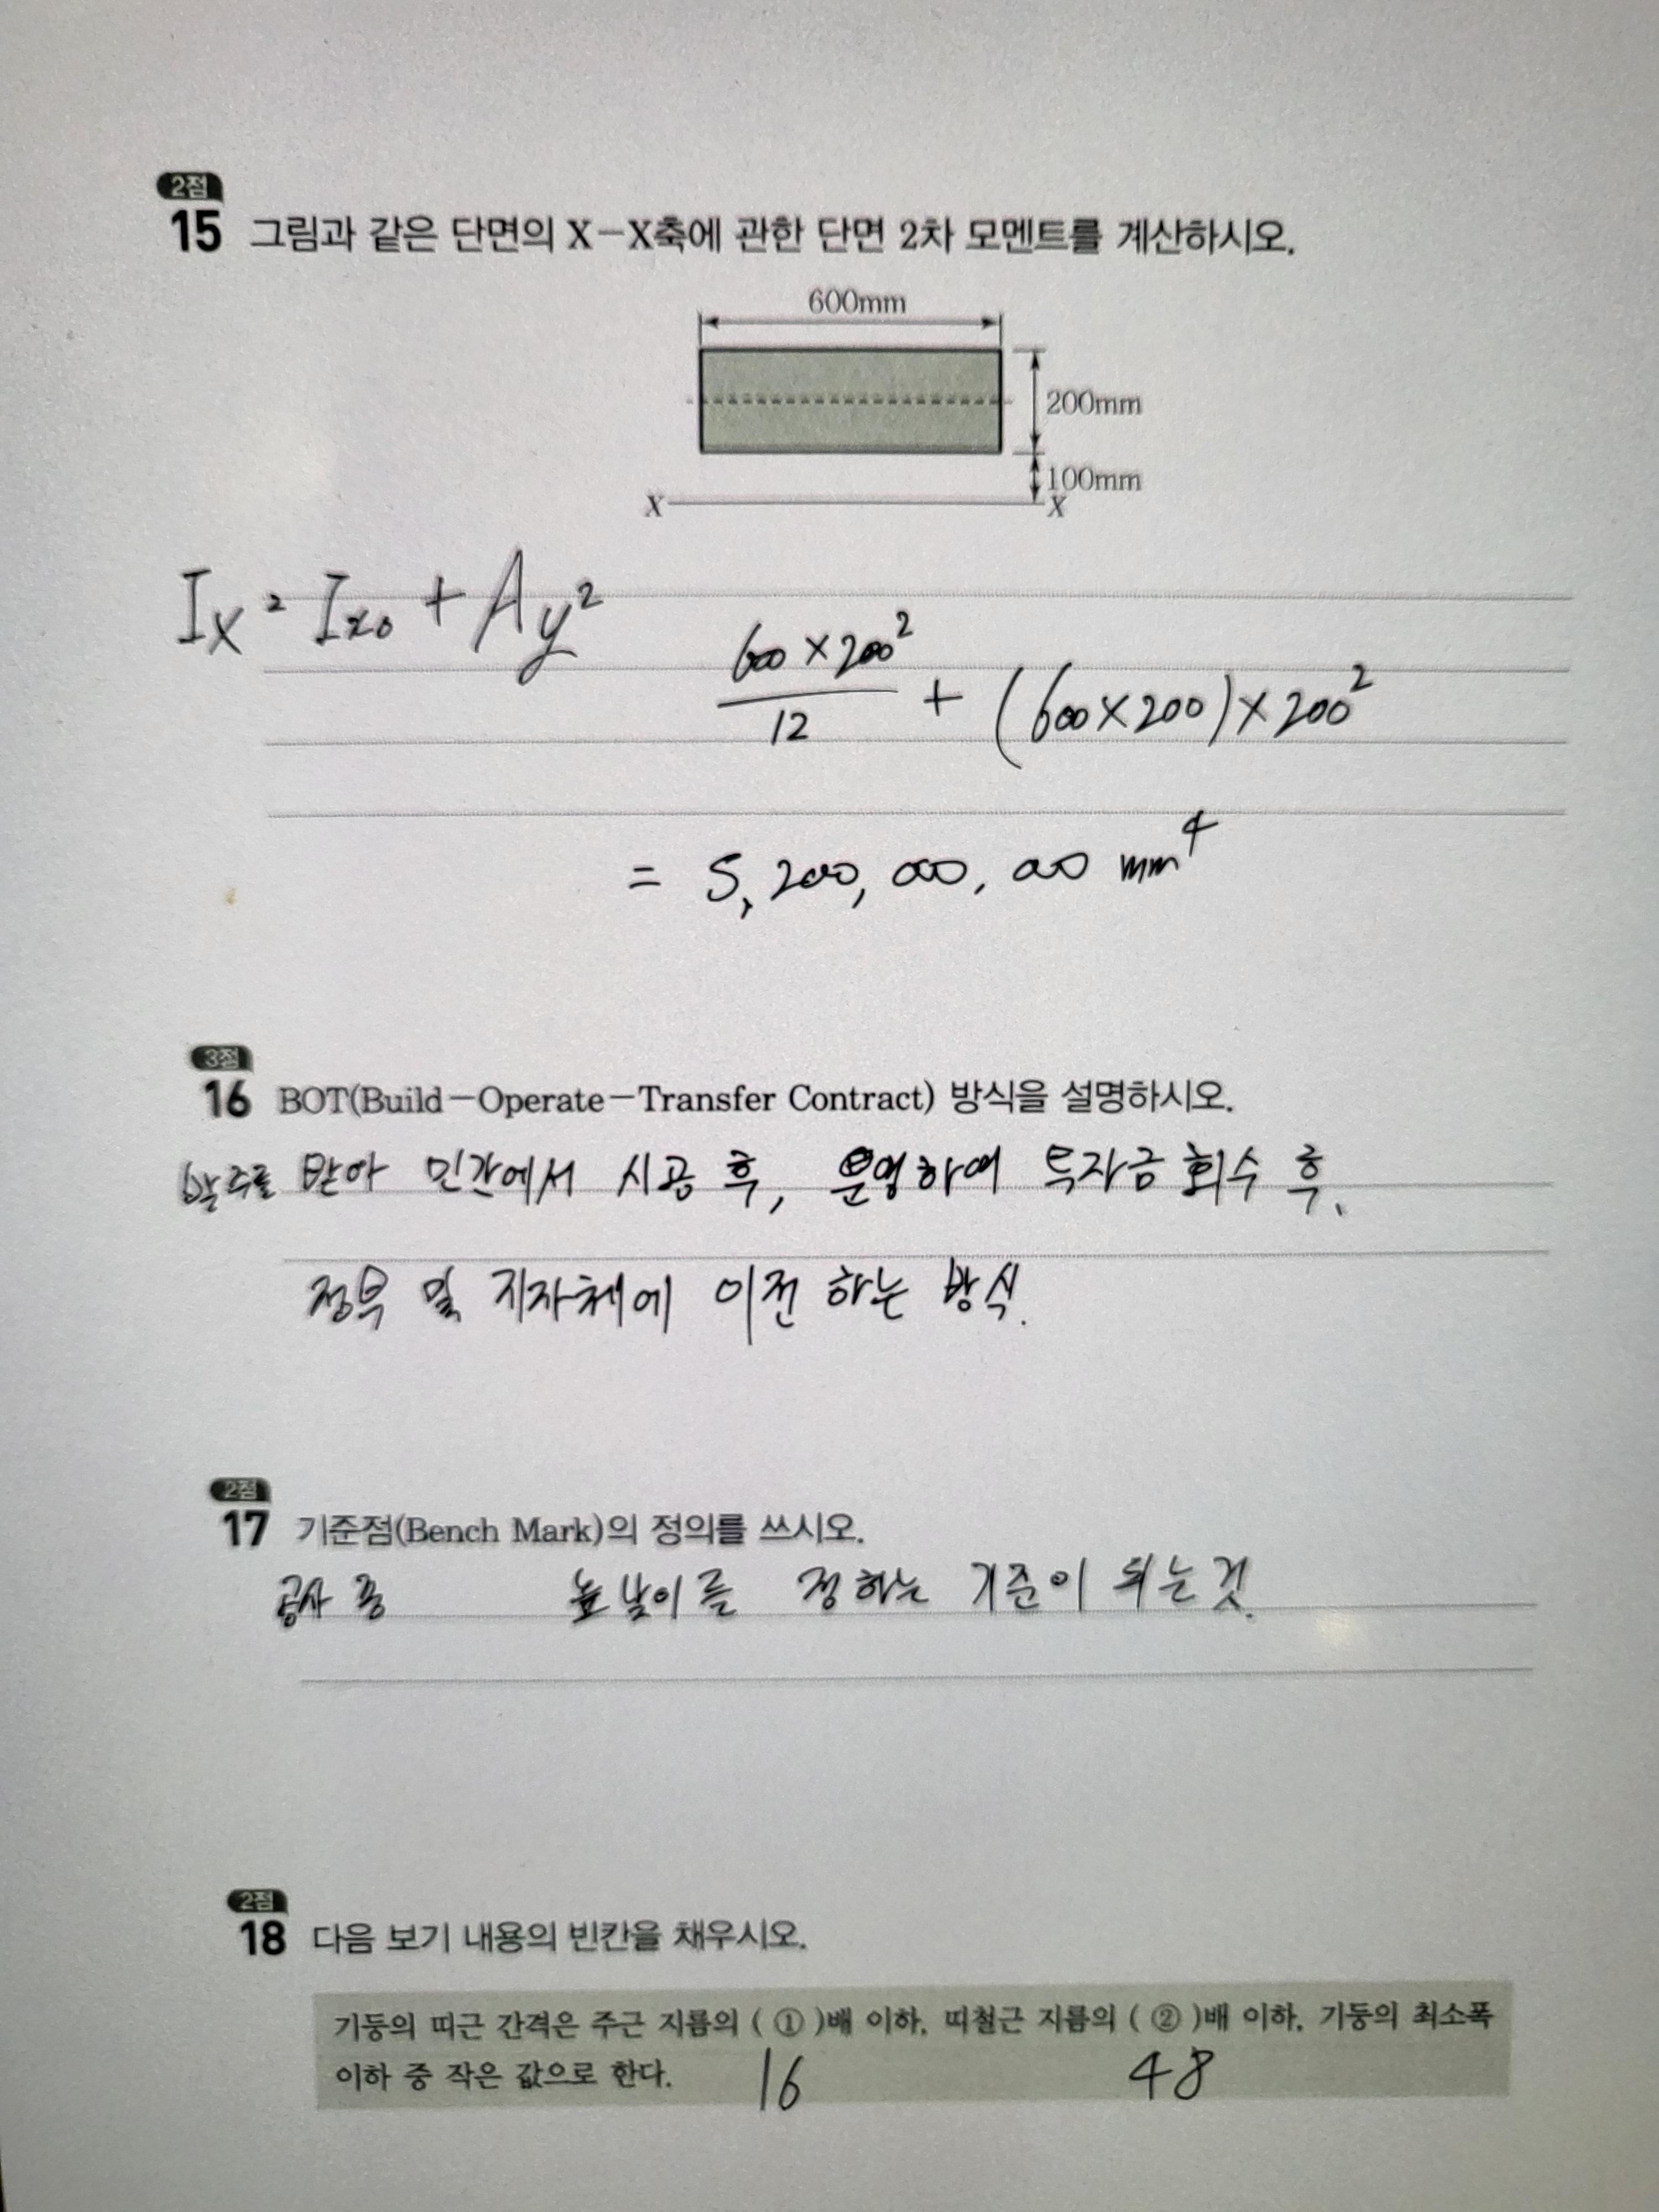 2점
15 그림과 같은 단면의 X-X축에 관한 단면 2차 모멘트를 계산하시오.
600mm
200mm
100mm
X X
Ix = Ixo + Ay²
600×200² / 12 + (600×200)×200²
= 5,200,000,000 mm⁴
3점
16 BOT(Build-Operate-Transfer Contract) 방식을 설명하시오.
발주를 받아 민간에서 시공 후, 운영하여 투자금 회수 후,
정부 및 지자체에 이전 하는 방식.
2점
17 기준점(Bench Mark)의 정의를 쓰시오.
공사 중 높낮이를 정하는 기준이 되는것.
2점
18 다음 보기 내용의 빈칸을 채우시오.
기둥의 띠근 간격은 주근 지름의 ( ① )배 이하, 띠철근 지름의 ( ② )배 이하, 기둥의 최소폭
이하 중 작은 값으로 한다. 16 48